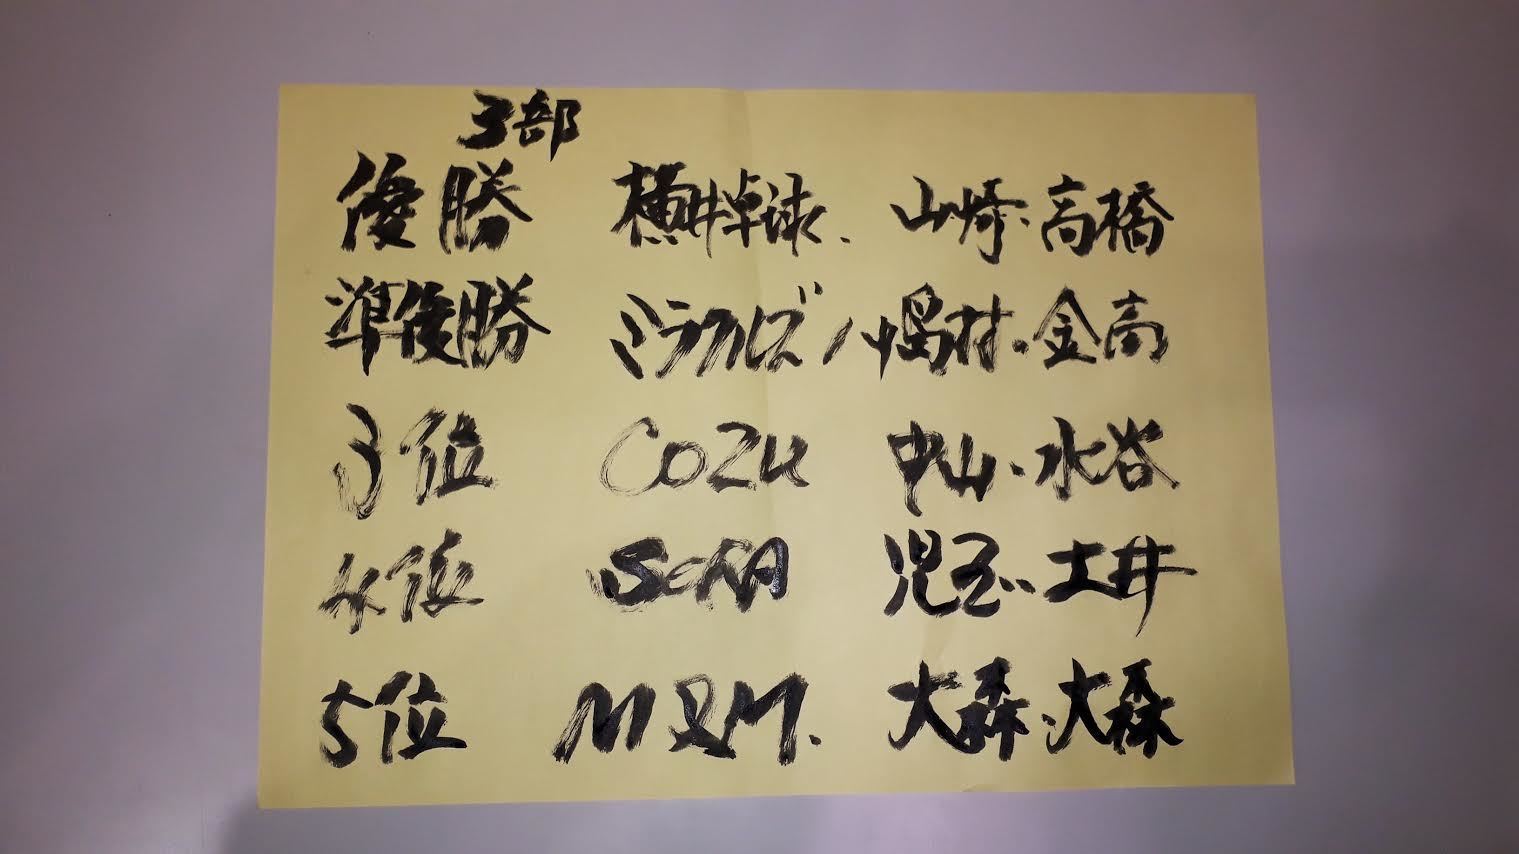 3部
優勝 横井卓球. 山崎・高橋
準優勝 ミラクルズ 嶋村・金高
3位 COZU 中山・水谷
4位 SERA 児玉・土井
5位 M&M. 大森・大森